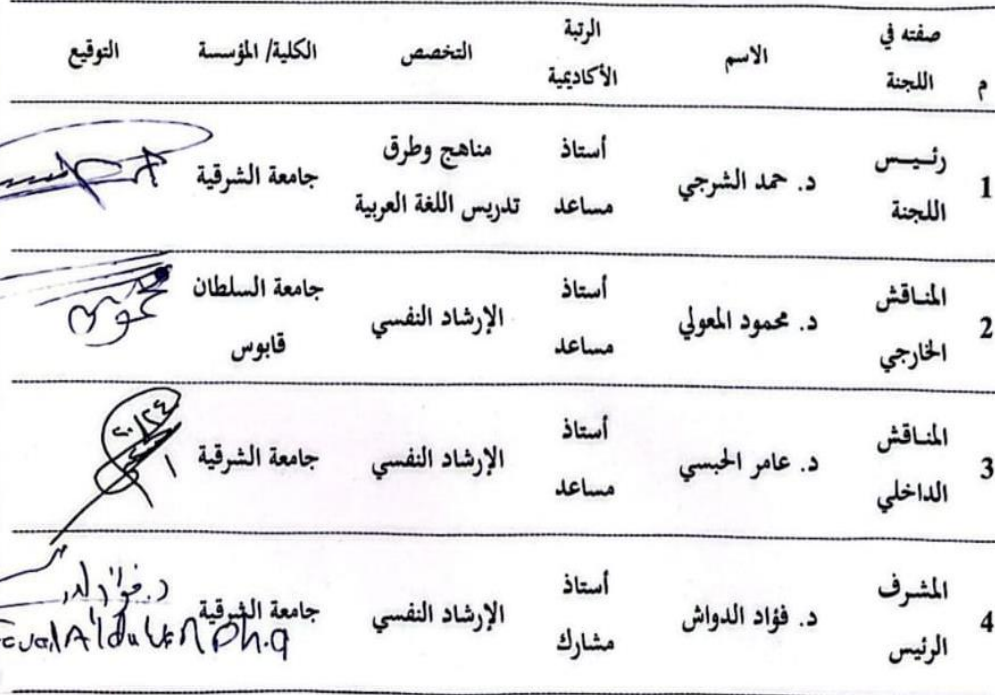 م صفته في اللجنة الاسم الرتبة الأكاديمية التخصص الكلية/ المؤسسة التوقيع
1 رئـيـــس اللجنة د. حمد الشرجي أستاذ مساعد مناهج وطرق تدريس اللغة العربية جامعة الشرقية
2 المنـاقش الخارجي د. محمود المعولي أستاذ مساعد الإرشاد النفسي جامعة السلطان قابوس
3 المنـاقش الداخلي د. عامر الحبسي أستاذ مساعد الإرشاد النفسي جامعة الشرقية
4 المشرف الرئيس د. فؤاد الدواش أستاذ مشارك الإرشاد النفسي جامعة الشرقية